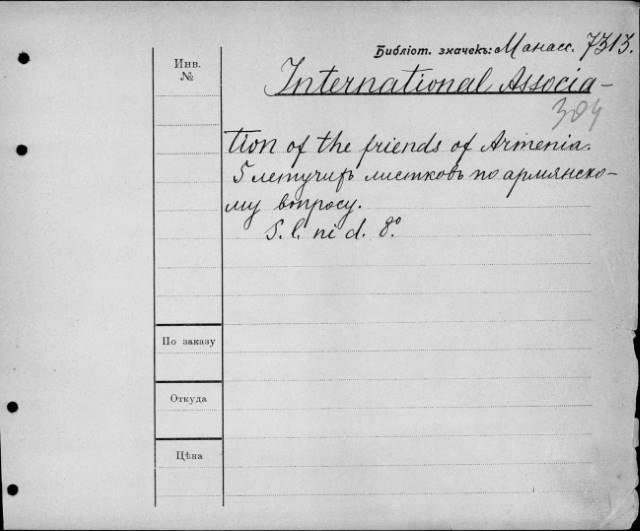 Библіот. значекъ: Манасс. 7313.
Инв.
№
International Associa-
304
tion of the friends of Armenia.
5 летучихъ листковъ по армянско-
му вопросу.
S. l. ni d. 8º.
По заказу
Откуда
Цѣна